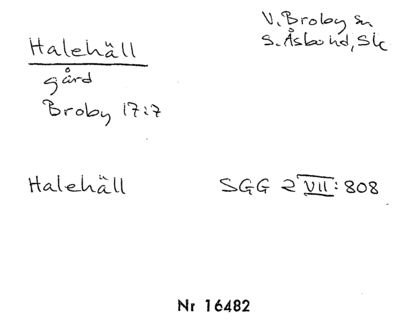 Halehäll
V. Broby sn
S. Åsbo hd, Sk
gård
Broby 17:7
Halehäll
SGG 2 VII: 808
Nr 16482